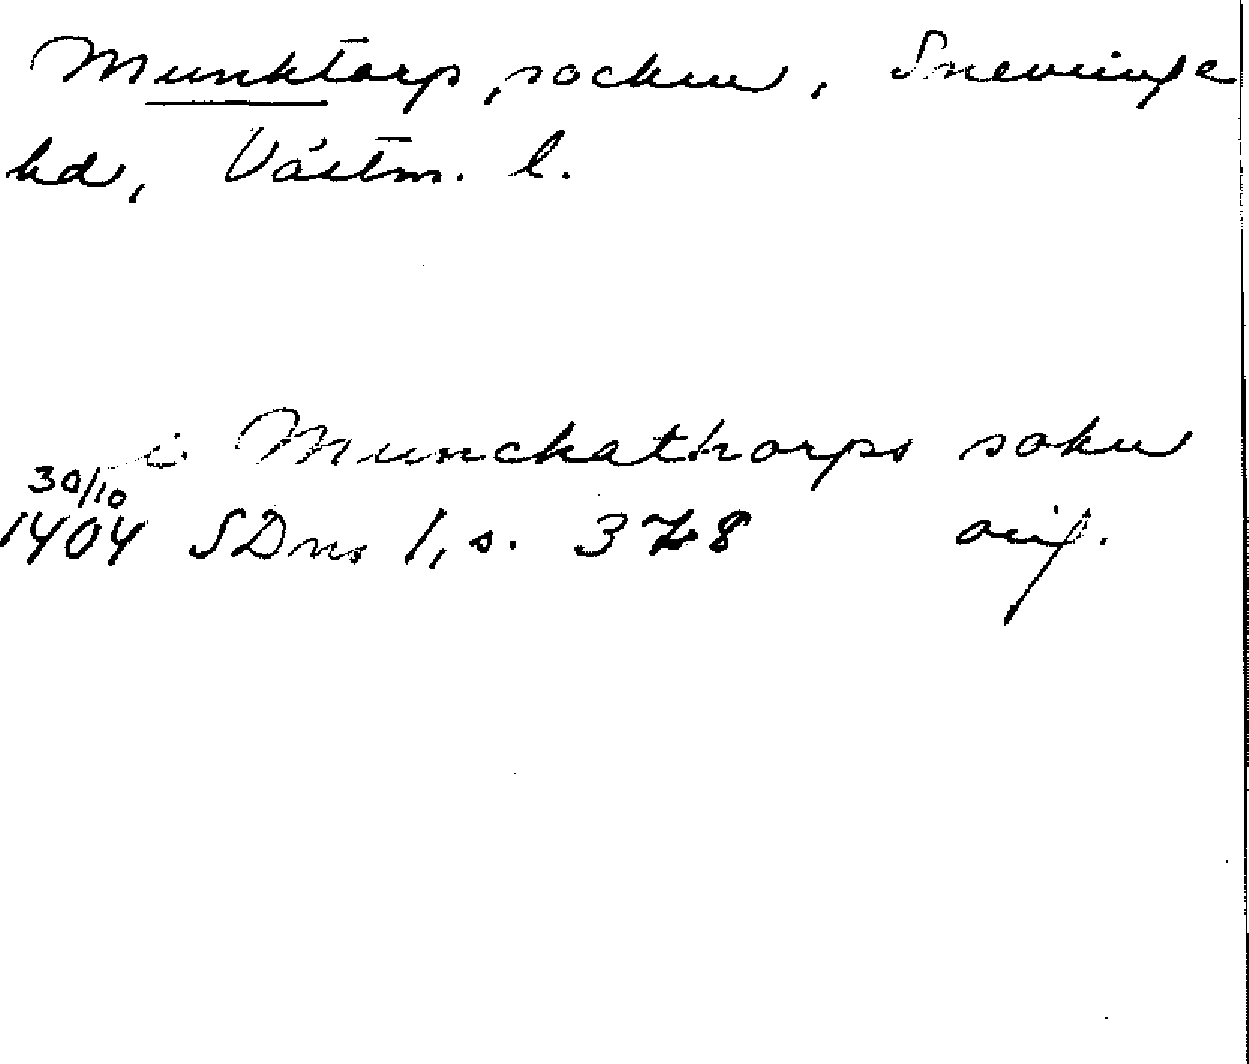 Munktorp, socken, Snevringe
hd, Västm. l.
i Munckathorps sokn
30/10
1404 SDns 1, s. 378 orig.